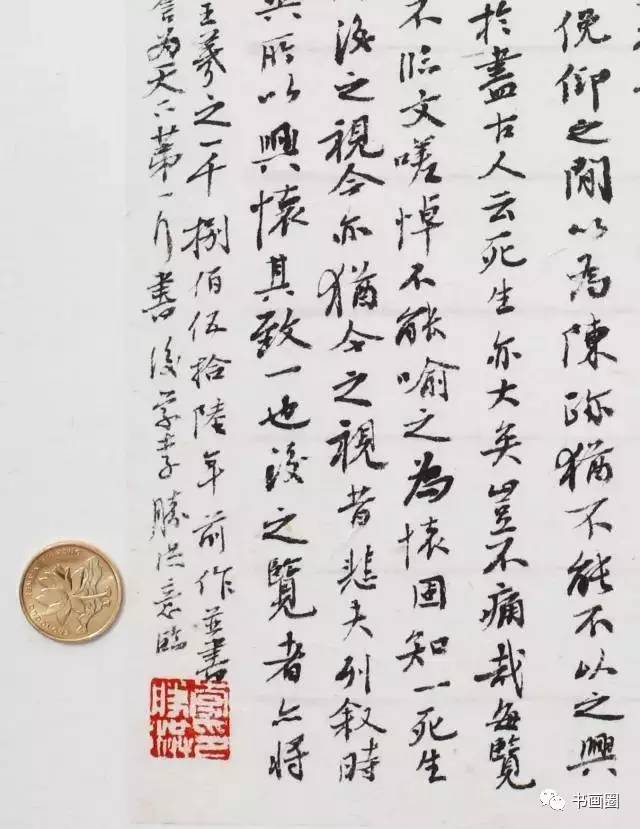 俛仰之閒以為陳跡猶不能不以之興
於盡古人云死生亦大矣豈不痛哉每覽
不臨文嗟悼不能喻之為懷固知一死生
後之視今亦猶今之視昔悲夫列敘時
異所以興懷其致一也後之覽者亦將
王羲之一千捌佰伍拾陸年前作並書
為天下苐一行書後学李勝洪意臨
书画圈